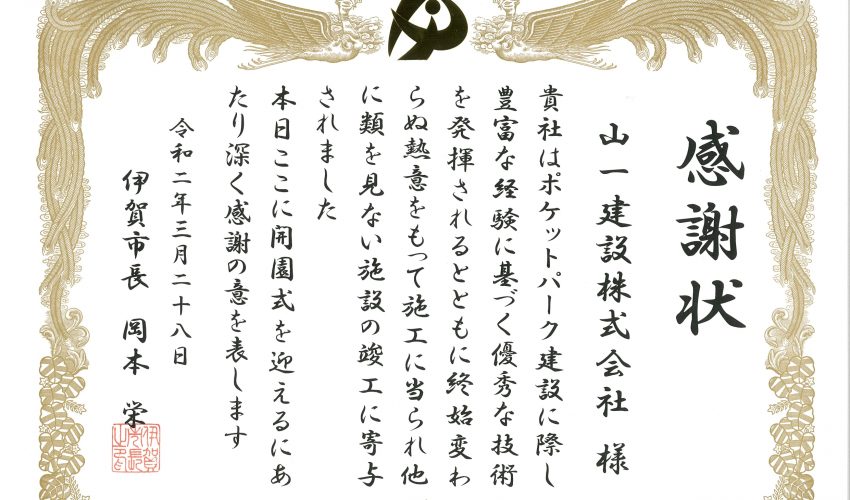 感謝状
山一建設株式会社 様
貴社はポケットパーク建設に際し
豊富な経験に基づく優秀な技術
を発揮されるとともに終始変わ
らぬ熱意をもって施工に当られ他
に類を見ない施設の竣工に寄与
されました
本日ここに開園式を迎えるにあ
たり深く感謝の意を表します
令和二年三月二十八日
伊賀市長 岡本 栄